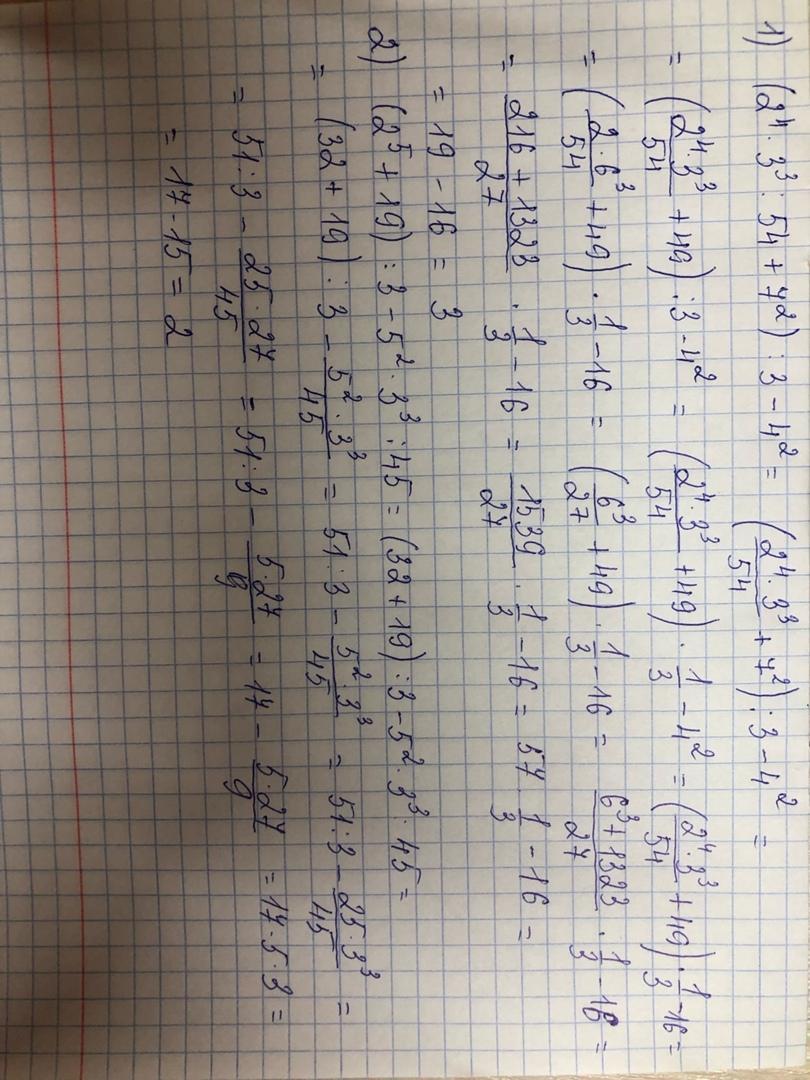 1) (2⁴·3³:54+7²):3-4²= (2⁴·3³/54+7²):3-4² =
= (2⁴·3³/54+49):3-4² = (2⁴·3³/54+49)·1/3-4² = (2⁴·3³/54+49)·1/3-16=
= (2·6³/54+49)·1/3-16= (6³/27+49)·1/3-16= 6³+1323/27·1/3-16=
= 216+1323/27·1/3-16= 1539/27·1/3-16=57·1/3-16=
= 19-16= 3
2) (2⁵+19):3-5²·3³:45=(32+19):3-5²·3³·45=
= (32+19):3-5²·3³/45 = 51:3-5²·3³/45 = 51:3-25·3³/45 =
= 51:3-25·27/45 = 51:3-5·27/9 = 17-5·27/9 = 17·5·3=
= 17-15=2